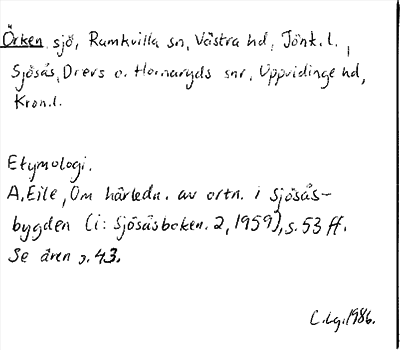 Örken sjö, Ramkvilla sn, Västra hd, Jönk.l.,
Sjösås, Drevs o. Hornaryds snr, Uppvidinge hd,
Kron.l.
Etymologi.
A. Eile, Om härledn. av ortn. i Sjösås-
bygden (i: Sjösåsboken. 2, 1959), s. 53 ff.
Se även s. 43.
C. Lg. 1986.